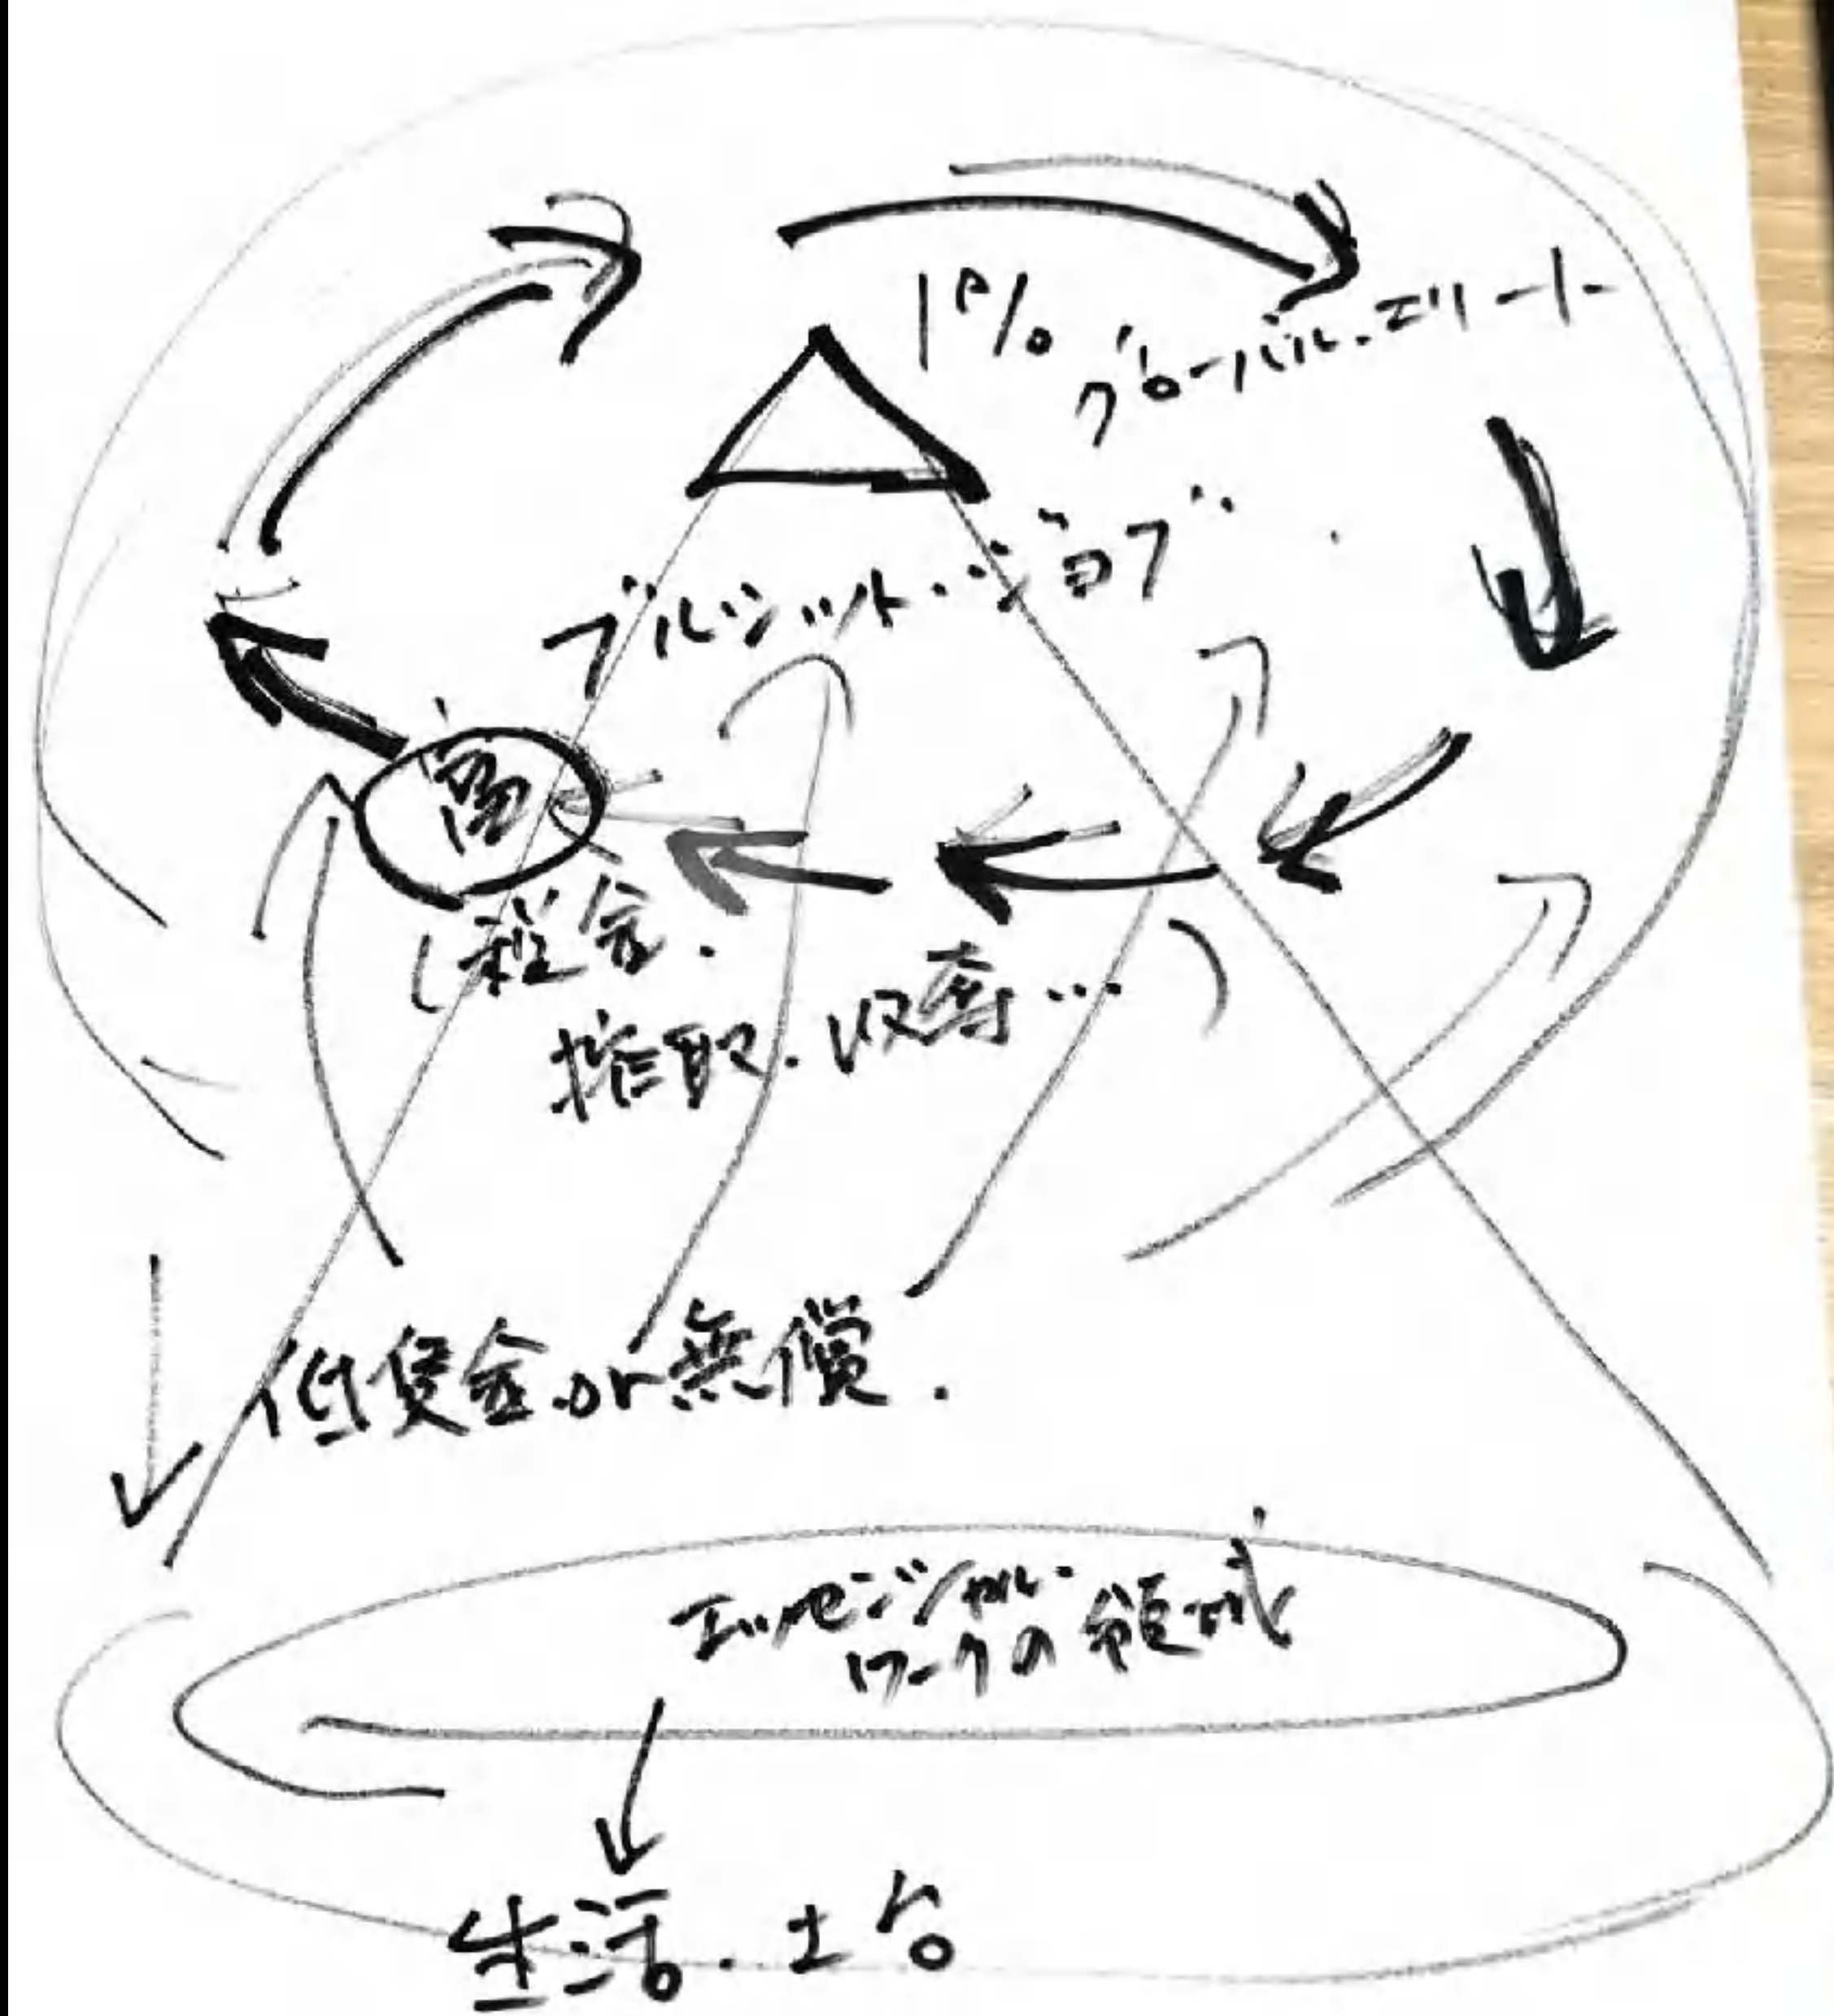 1%
グローバル・エリート
ブルシット・ジョブ
富
(税金・
搾取・収奪…)
低賃金or無償.
エッセンシャル・
ワークの領域
生活・土台